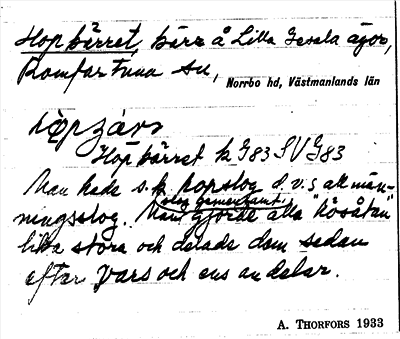 Hopkärret, kärr å Lilla Gesala ägor,
Romfartuna sn,
Norrbo hd, Västmanlands län
Hopkärret k G83 SV G83
Man hade s.k. hopslog d.v.s allmän-
ningsslog. Man slog gemensamt. gjorde alla "hösåtar"
lika stora och delade dom sedan
efter vars och ens andelar.
A. THORFORS 1933